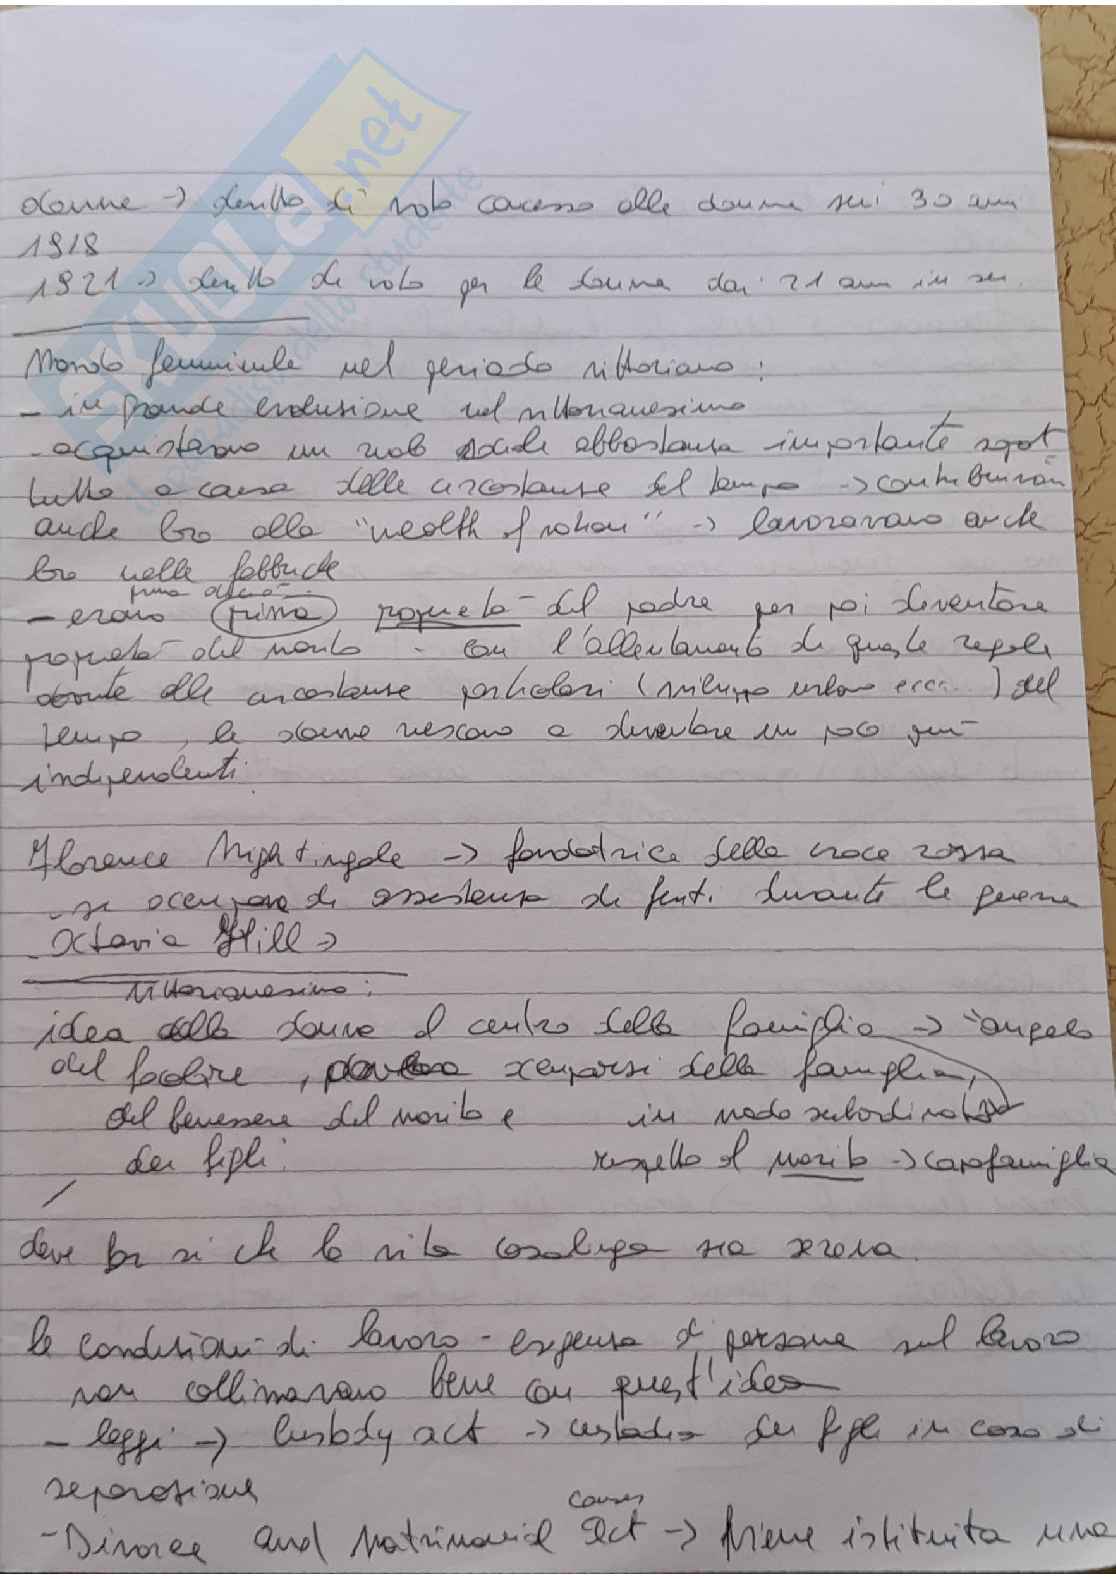 SKUOLA.net
donne -> diritto di voto concesso alle donne sui 30 anni
1918
1921 -> diritto di voto per le donne dai 21 anni in su.
Mondo femminile nel periodo vittoriano:
- in grande evoluzione nel vittorianesimo
- acquisterano un ruolo sociale abbastanza importante soprat
tutto a causa delle circostanze del tempo -> contribuiran
anche loro alla "wealth of nation" -> lavoravano anche
loro nelle fabbriche
- erano prima proprietà del padre per poi diventare
proprietà del marito - con l'allentamento di queste regole
dovute alle circostanze particolari (sviluppo urbano ecc...) del
tempo, le donne riescono a diventare un po' più
indipendenti.
Florence Nightingale -> fondatrice della croce rossa
- si occupava di assistenza di feriti durante le guerre
- Octavia Hill ->
vittorianesimo:
idea della donna al centro della famiglia -> "angelo
del focolare, doveva occuparsi della famiglia,
del benessere del marito e in modo subordinato
dei figli. rispetto al marito -> capofamiglia
deve far sì che la vita casalinga sia serena.
le condizioni di lavoro - esigenza di persone sul lavoro
non collimavano bene con quest'idea
- leggi -> Custody act -> custodia dei figli in caso di
separazione
causes
- Divorce and Matrimonial Act -> viene istituita una